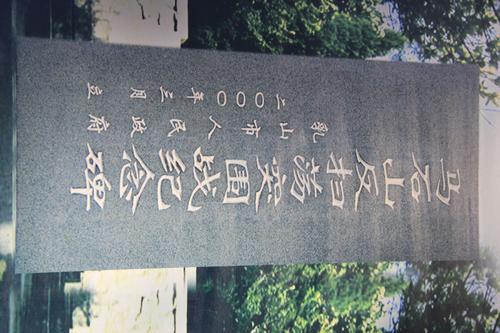 马石山反扫荡突围战纪念碑
乳山市人民政府
二〇〇〇年三月立